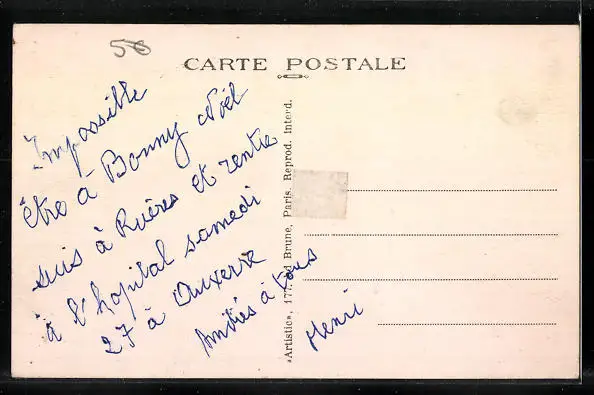 56
CARTE POSTALE
Impossible
être à Bonny Noël
suis à Rvières et rentre
à l'hopital samedi
27 à Auxerre
Amitiés à tous
Henri
«Artistic», 177, Bd Brune, Paris. Reprod. Interd.